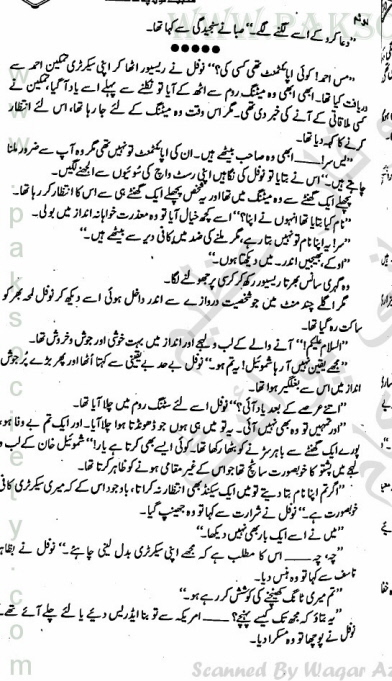 دعا کرو کے اسے لگنے لگے۔" صبا نے سنجیدگی سے کہا تھا۔
●●●●●
"مس احمد! کوئی اپائنٹمنٹ تھی کسی کی؟" نوفل نے ریسیور اٹھا کر اپنی سیکرٹری تمکین احمد سے
دریافت کیا تھا۔ ابھی ابھی وہ میٹنگ روم سے اٹھ کے آیا تو نکلنے سے پہلے اسے یاد آ گیا، تمکین نے
کسی ملاقاتی کے آنے کی خبر دی تھی۔ مگر اس وقت وہ میٹنگ کے لئے جا رہا تھا، اس لئے انتظار
کرنے کا کہہ دیا تھا۔
"یس سر! ____ ابھی وہ صاحب بیٹھے ہیں۔ ان کی اپائنٹمنٹ تو نہیں تھی مگر وہ آپ سے ضرور ملنا
چاہتے ہیں۔" اس نے بتایا تو نوفل کی نگاہیں اپنی رسٹ واچ کی سوئیوں سے الجھنے لگیں۔
پچھلے ایک گھنٹے سے وہ میٹنگ میں تھا اور یہ شخص پچھلے ایک گھنٹے ہی سے اس کا انتظار کر رہا تھا۔
"نام کیا بتایا تھا انہوں نے اپنا؟" اسے کچھ خیال آیا تو وہ معذرت خواہانہ انداز میں بولی۔
"سر! یہ اپنا نام تو نہیں بتا رہے، مگر ملنے کی ضد میں کافی دیر سے بیٹھے ہیں۔"
"اوکے، بھیجیں اندر۔ میں دیکھتا ہوں۔"
وہ گہری سانس بھرتا ریسیور رکھ کر کرسی پر جھولنے لگا۔
مگر اگلے چند منٹ میں جو شخصیت دروازے سے اندر داخل ہوئی اسے دیکھ کر نوفل لمحہ بھر کو
ساکت رہ گیا تھا۔
"السلام علیکم!" آنے والے کے لب و لہجے اور انداز میں بہت خوشی اور جوش و خروش تھا۔
"مجھے یقین نہیں آ رہا شموئیل! یہ تم ہو۔" نوفل بے حد بے یقینی سے کہتا اٹھا اور پھر بڑے پُر جوش
انداز میں اس سے بغلگیر ہوا تھا۔
"اتنے عرصے کے بعد یاد آئی؟" نوفل اسے لئے سٹنگ روم میں چلا آیا تھا۔
"اور تمہیں تو وہ بھی نہیں آئی۔ یہ تو میں ہی ہوں جو ڈھونڈتا ہوا چلا آیا۔ اور ایک تم بے وفا ہو،
پورے ایک گھنٹے سے باہر سڑنے کو بٹھا رکھا تھا۔ کوئی ایسے بھی کرتا ہے یار!" شموئیل خان کے لب و
لہجے میں پشتو کا خوبصورت سا ٹچ تھا جو اس کے غیر مقامی ہونے کو ظاہر کرتا تھا۔
"اگر تم اپنا نام بتا دیتے تو میں ایک سیکنڈ بھی انتظار نہ کراتا، باوجود اس کے کہ میری سیکرٹری کافی
خوبصورت ہے۔" نوفل نے شرارت سے کہا تو وہ جھینپ گیا۔
"میں نے اسے ایک بار بھی نہیں دیکھا۔"
"چہ، چہ ____ اس کا مطلب ہے کہ مجھے اپنی سیکرٹری بدل لینی چاہئے۔" نوفل نے بظاہر
تاسف سے کہا تو وہ ہنس دیا۔
"تم میری ٹانگ کھینچنے کی کوشش کر رہے ہو۔"
"یہ بتاؤ کہ مجھ تک کیسے پہنچے؟ ____ امریکہ سے تو بنا ایڈریس دیئے یا لئے چلے آئے تھے۔"
نوفل نے پوچھا تو وہ مسکرا دیا۔
www.paksociety.com
Scanned By Waqar Az